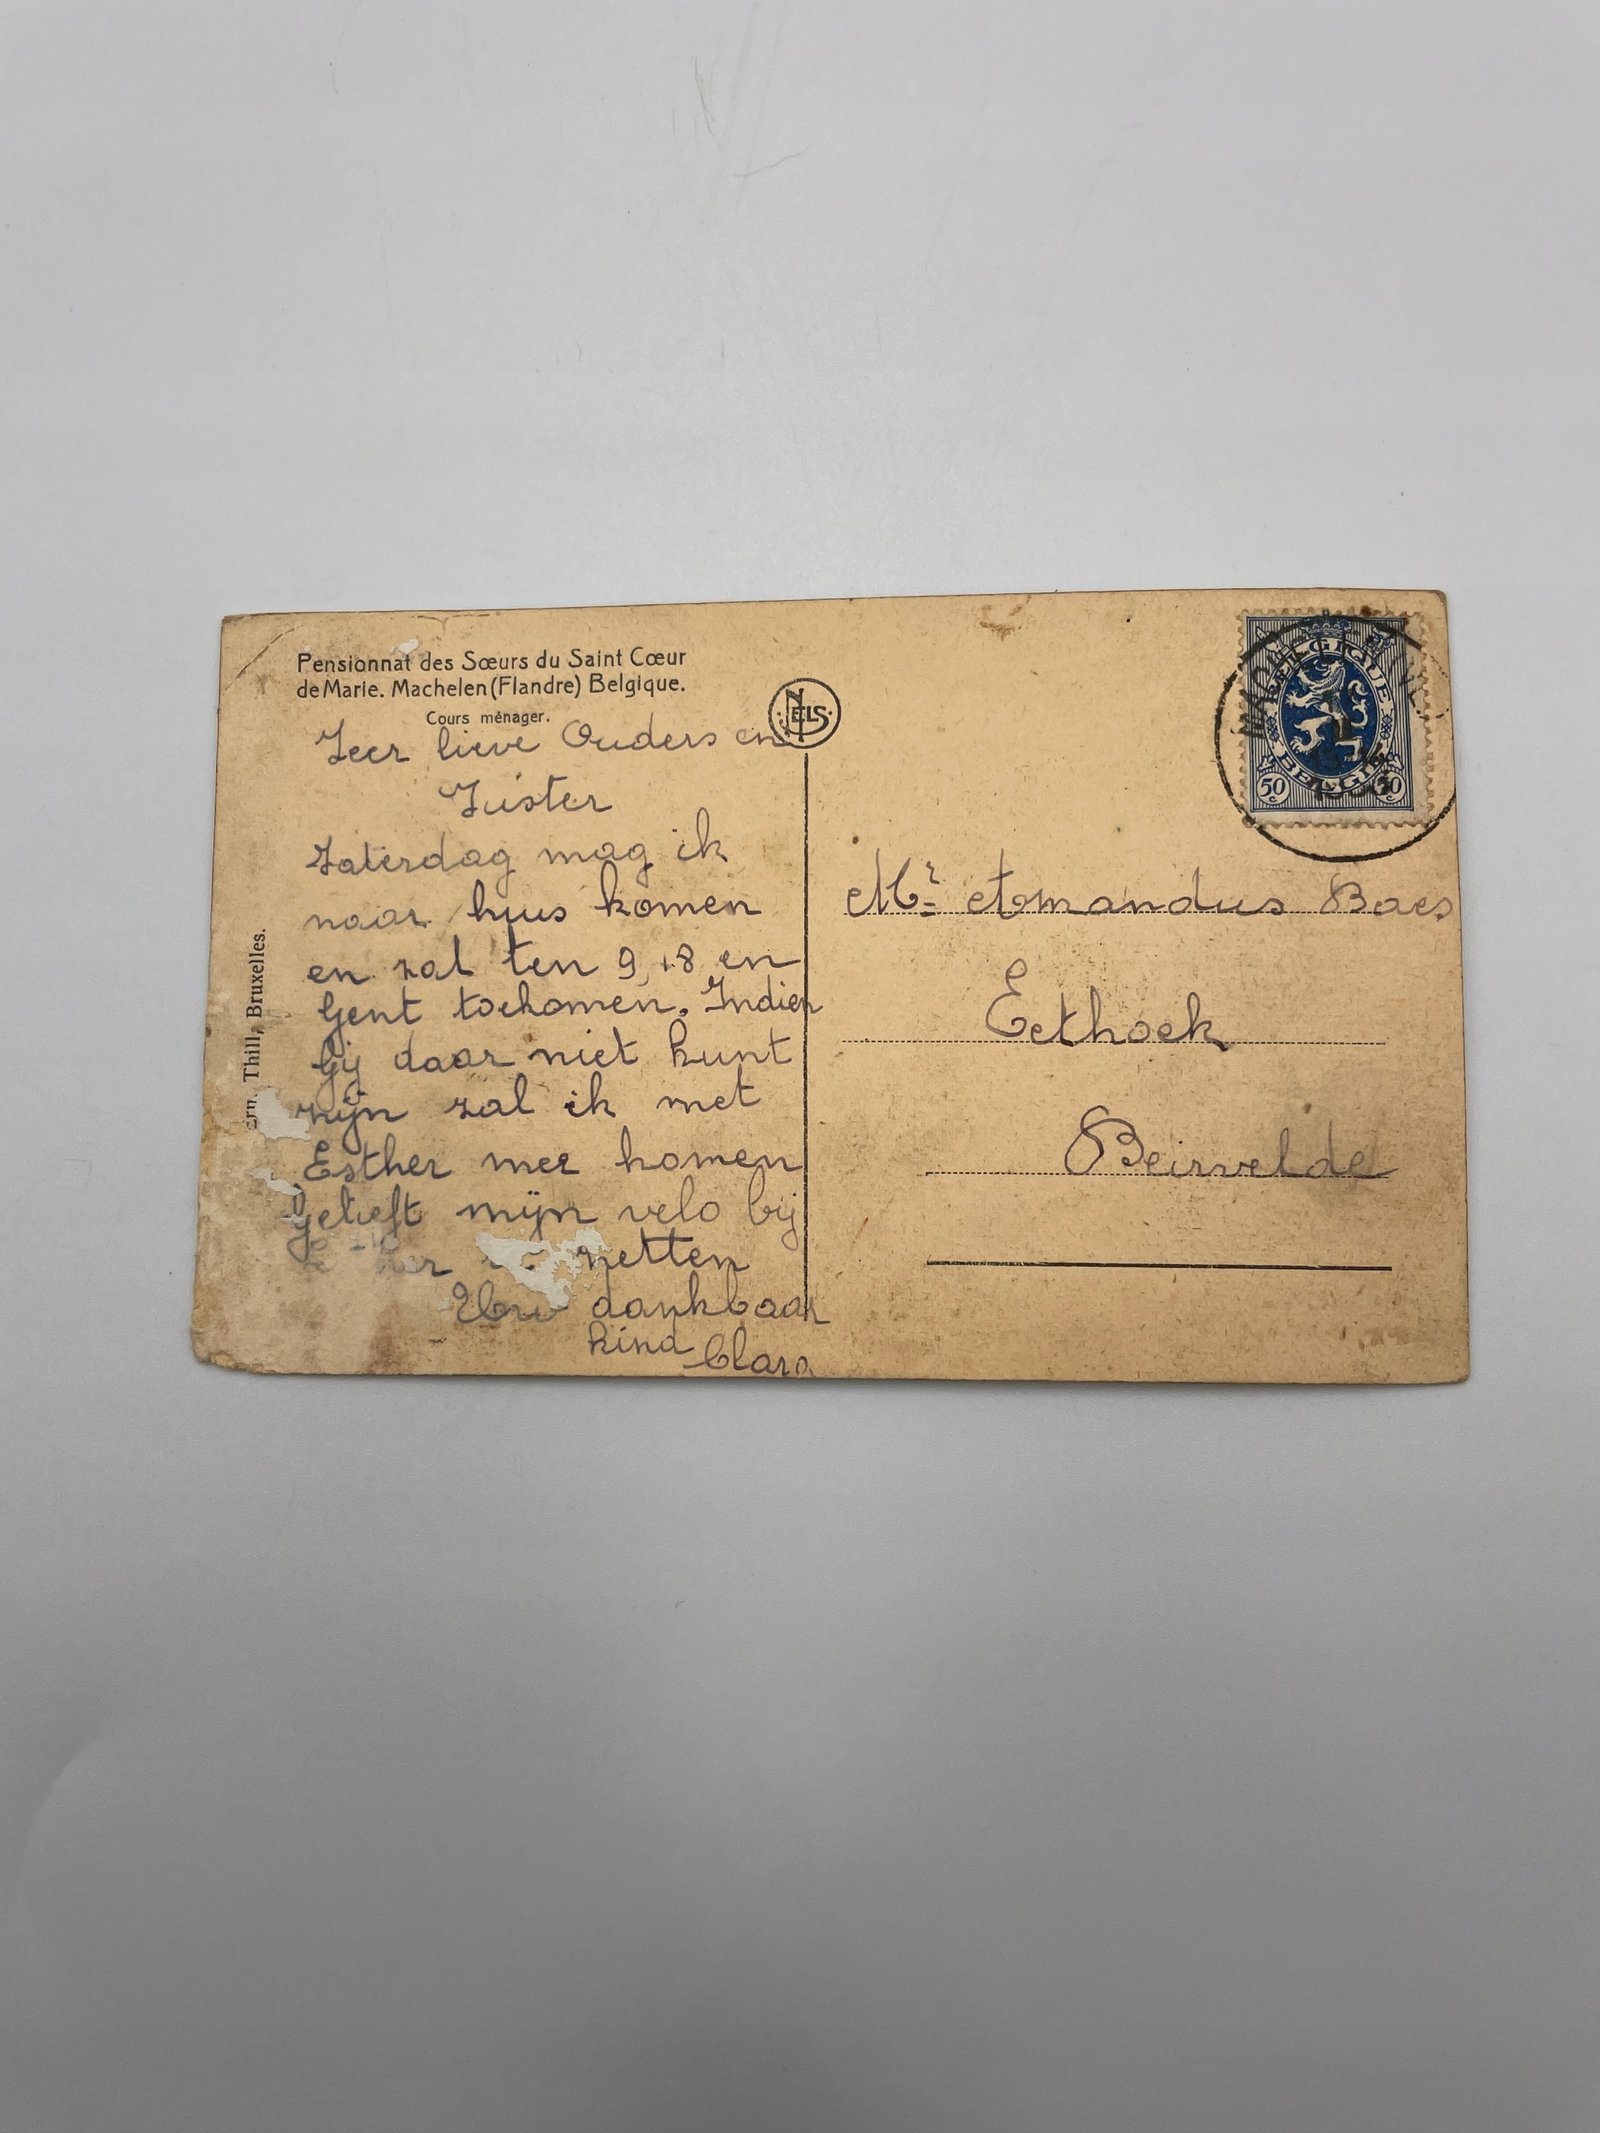 Pensionnat des Sœurs du Saint Cœur
de Marie. Machelen (Flandre) Belgique.
Cours ménager.
NELS
Zeer lieve Ouders en
Zuster
Zaterdag mag ik
naar huis komen
en zal ten 9,18 en
Gent toekomen. Indien
Gij daar niet kunt
zijn zal ik met
Esther mee komen
Gelieft mijn velo bij
zetten
Uw dankbaar
kind Clara
Thill, Bruxelles.
BELGIQUE
BELGIË
50 c
50 c
Mr Armandus Baes
Eethoek
Beirvelde